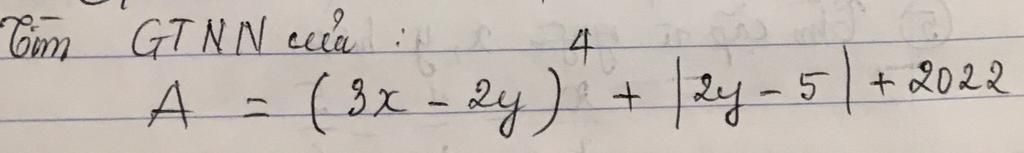 Tìm GTNN của :
A = (3x - 2y)⁴ + |2y - 5| + 2022